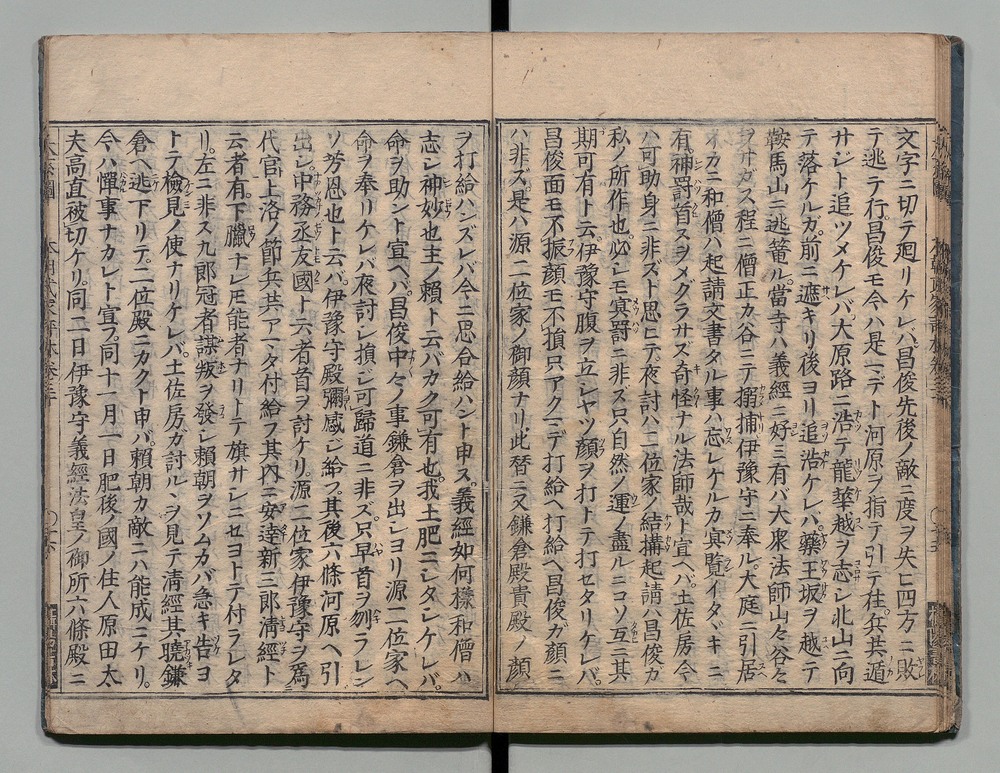 文字ニ切テ廻リケレバ、昌俊先後ノ敵ニ度ヲ失ヒ四方ニ敗
テ逃テ行。昌俊モ今ハ是ニデト河原ヲ指テ引テ往。兵共遁
サシト追ツメケレバ、大原路ニ浩テ龍華越ヲ志シ北山ニ向
テ落ケルガ。前ニ遮キリ後ヨリ追浩ケレバ。藥王坂ヲ越ヘテ
鞍馬山ニ逃篭ル。當寺ハ義經ニ好ミ有バ大衆法師山々谷々
ヲサガス程ニ僧正カ谷ニテ搦捕伊豫守ニ奉ル。大庭ニ引居
イカニ和僧ハ起請文書タル事ハ忘レケルカ。冥覧イタヾキニ
有。神罸首スヲメグラサズ奇怪ナル法師哉ト宣ヘバ、土佐房今
ハ可助身ニ非ズト思ヒテ夜討ハ二位家ノ結搆起請ハ昌俊カ
私ノ所作也。必シモ冥罸ニ非ズ只自然ノ運ノ盡ルニコソ互ニ其
期可有ト云。伊豫守腹ヲ立シヤツ頬ヲ打トテ打セタリケレバ。
昌俊面モ不振顔モ不損只アクニデ打給ヘ打給ヘ昌俊ガ顔ニ
ハ非ズ是ハ源二位家ノ御顔ナリ。此替ニ又鎌倉殿貴殿ノ顔
ヲ打給ハンズレバ今ニ思合給ハント申ス。義經如何樣和僧ハ
志シ神妙也主ノ頼ト云バカク可有也。我土肥ニシタシケレバ。
命ヲ助ント宣ヘバ。昌俊中々ノ事鎌倉ヲ出シヨリ源二位家ヘ
命ヲ奉リケレバ夜討シ損じ可歸道ニ非ズ只早首ヲ刎ラレン
ソ芳恩也ト云バ。伊豫守殿彌感じ給フ。其後六條河原ヘ引
出シ中務丞友國ト云者首ヲ討ケリ。源二位家伊豫守ヲ爲
代官上洛ノ節兵共アマタ付給フ其内ニ安達新三郎淸經ト
云者有。下臈ナレ𪜈能者ナリトテ旗サシニセヨトテ付ラレタ
リ。左ニ非ス九郎冠者謀叛ヲ發シ頼朝ヲソムカバ急キ告ヨ
トテ檢見ノ使ナリケレバ。土佐房カ討ルヽヲ見テ淸經其曉鎌
倉ヘ逃下リテ。二位殿ニカクト申バ。頼朝カ敵ニハ能成ニケリ。
今ハ憚事ナカレト宣フ。同十一月一日肥後ノ國ノ住人原田太
夫高直被切ケリ。同二日伊豫守義經法皇ノ御所六條殿ニ